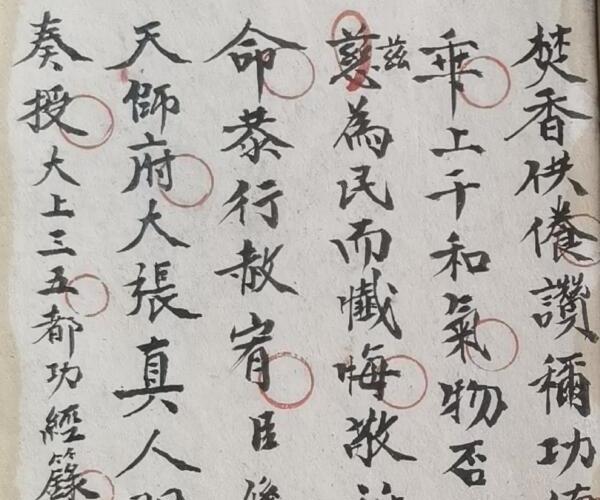 焚香供養讚穪功
乖上千和氣物否
茲為民而懺悔敬
命恭行赦宥臣
天師府大張真人
奏授大上三五都功經籙